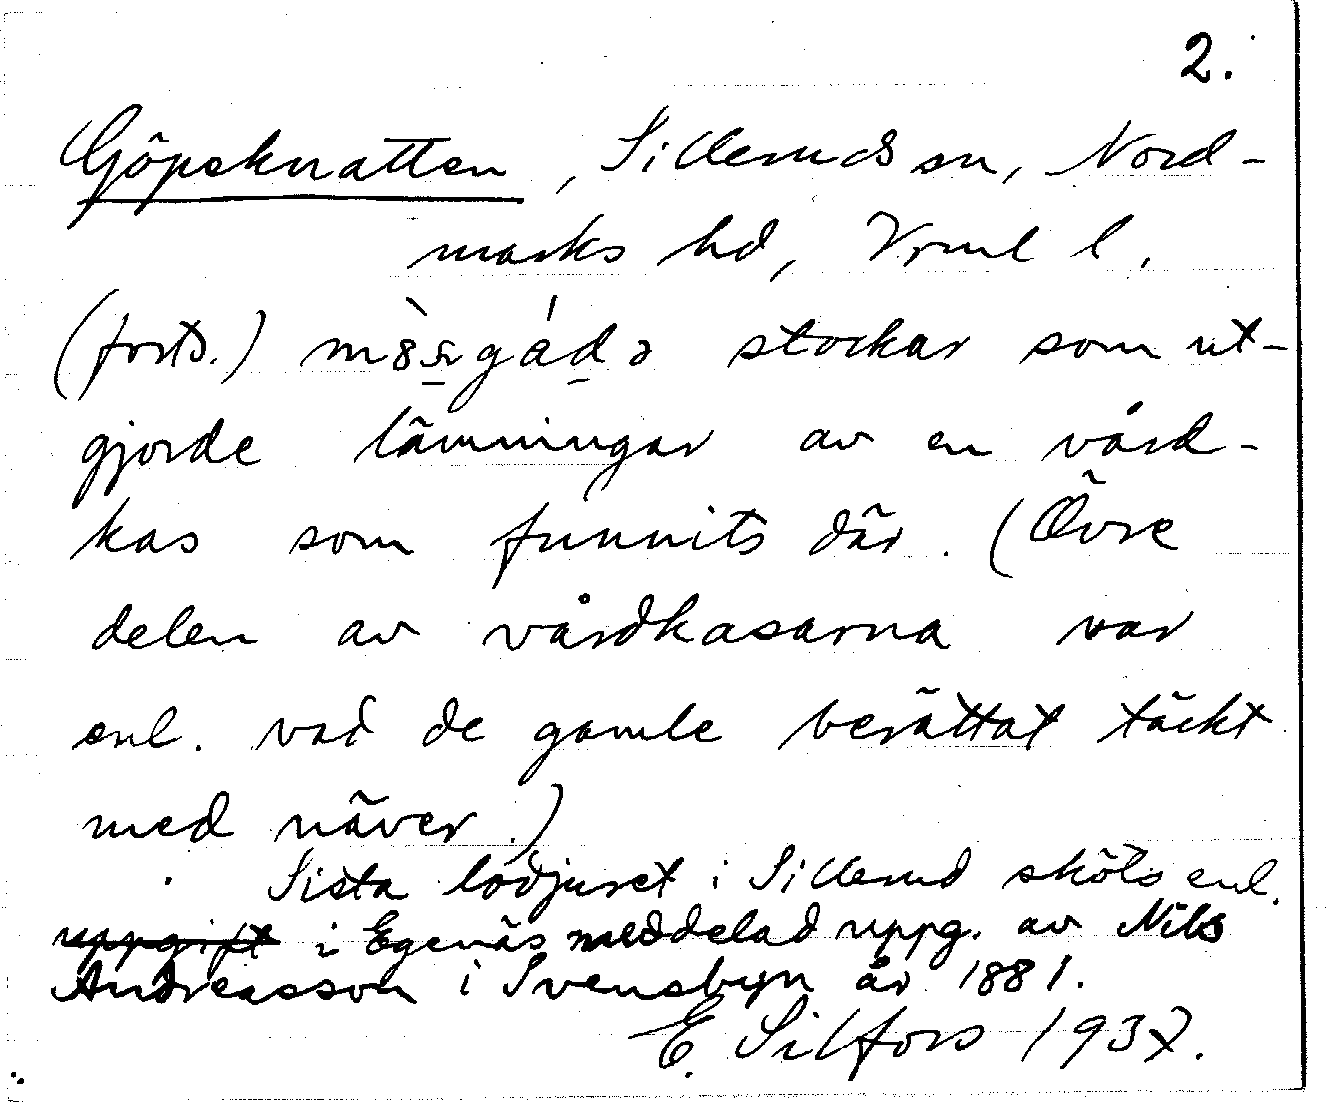 2.
Göpeknatten, Sillerud sn, Nord-
marks hd, Vrml l.
(forts.) stockar som ut-
gjorde lämningar av en vård-
kas som funnits där. (Övre
delen av vårdkasarna var
enl. vad de gamle berättat täckt
med näver.)
Sista lodjuret i Sillerud sköts enl.
uppgift i Egenäs meddelad uppg. av Nils
Andreasson i Svensbyn år 1881.
E. Silfors 1937.